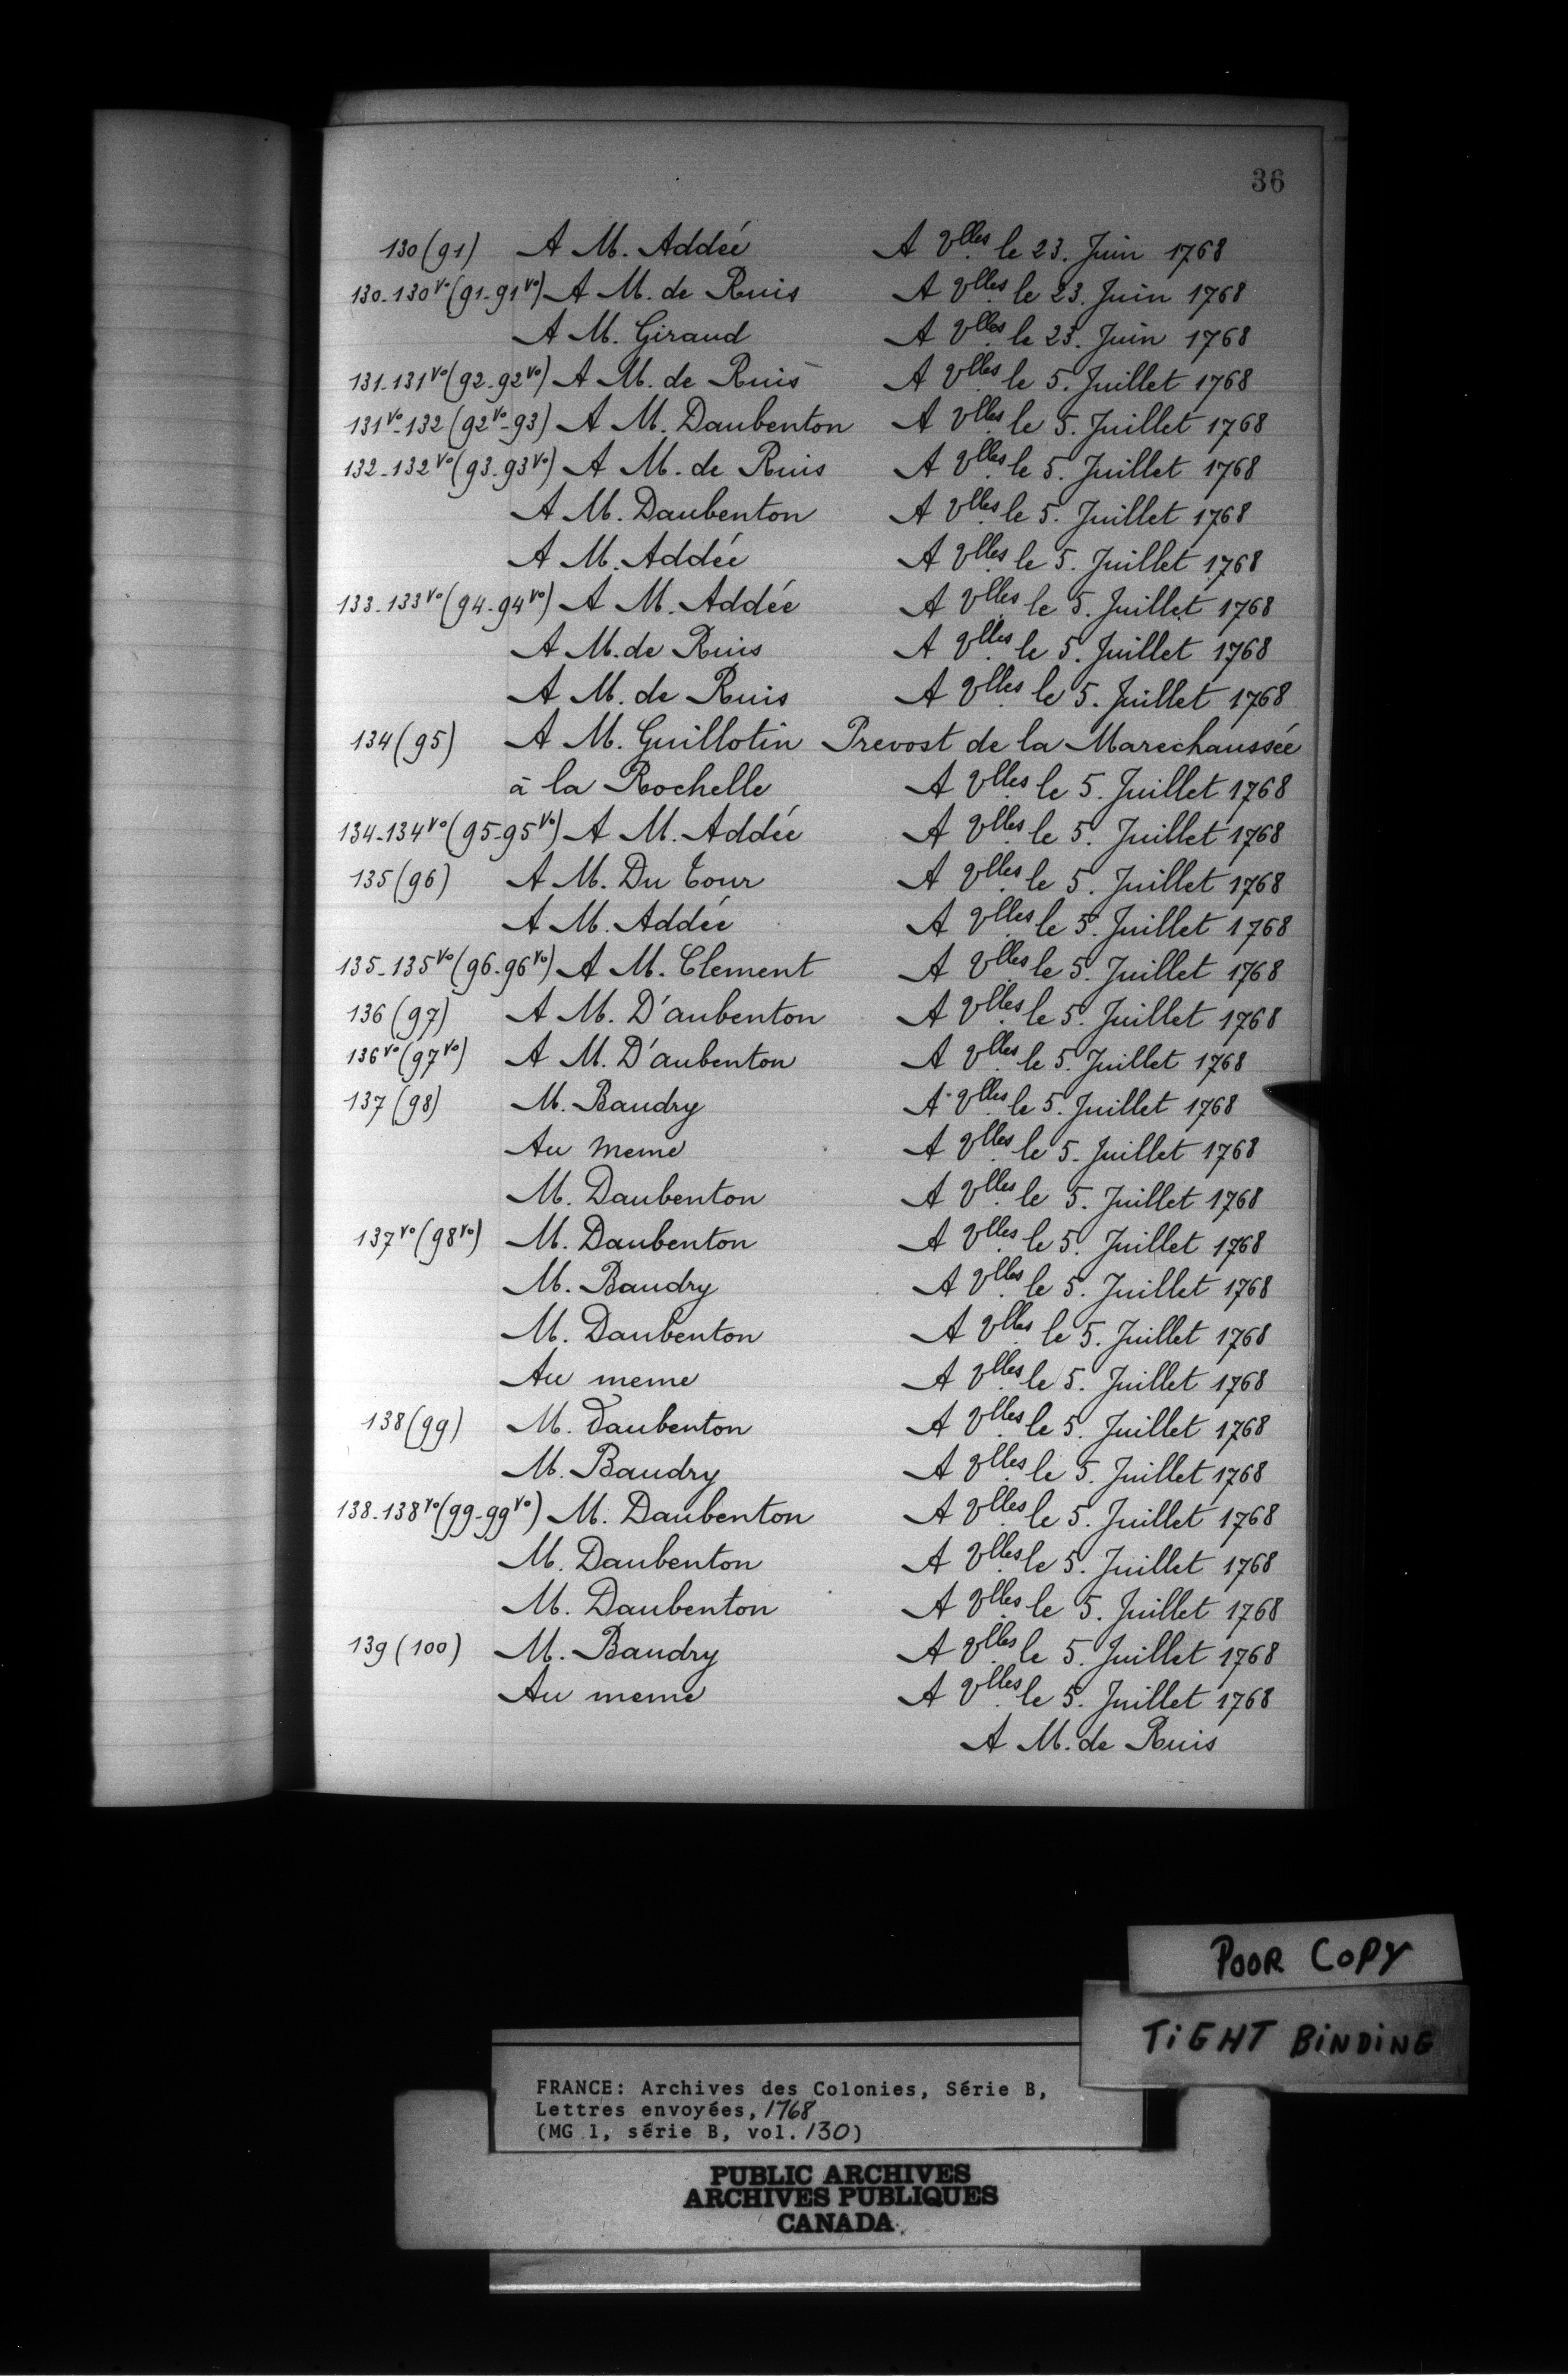 36
130 (91) A M. Addée A Vlles le 23. Juin 1768
130-130vo (91-91vo) A M. de Ruis A Vlles le 23. Juin 1768
A M. Giraud A Vlles le 23. Juin 1768
131-131vo (92-92vo) A M. de Ruis A Vlles le 5. Juillet 1768
131vo-132 (92vo-93) A M. Daubenton A Vlles le 5. Juillet 1768
132-132vo (93-93vo) A M. de Ruis A Vlles le 5. Juillet 1768
A M. Daubenton A Vlles le 5. Juillet 1768
A M. Addée A Vlles le 5. Juillet 1768
133-133vo (94-94vo) A M. Addée A Vlles le 5. Juillet 1768
A M. de Ruis A Vlles le 5. Juillet 1768
A M. de Ruis A Vlles le 5. Juillet 1768
134 (95) A M. Guillotin Prevost de la Marechaussée
à la Rochelle A Vlles le 5. Juillet 1768
134-134vo (95-95vo) A M. Addée A Vlles le 5. Juillet 1768
135 (96) A M. Du Tour A Vlles le 5. Juillet 1768
A M. Addée A Vlles le 5. Juillet 1768
135-135vo (96-96vo) A M. Clement A Vlles le 5. Juillet 1768
136 (97) A M. D'aubenton A Vlles le 5. Juillet 1768
136vo (97vo) A M. D'aubenton A Vlles le 5. Juillet 1768
137 (98) M. Baudry A Vlles le 5. Juillet 1768
Au meme A Vlles le 5. Juillet 1768
M. Daubenton A Vlles le 5. Juillet 1768
137vo (98vo) M. Daubenton A Vlles le 5. Juillet 1768
M. Baudry A Vlles le 5. Juillet 1768
M. Daubenton A Vlles le 5. Juillet 1768
Au meme A Vlles le 5. Juillet 1768
138 (99) M. Daubenton A Vlles le 5. Juillet 1768
M. Baudry A Vlles le 5. Juillet 1768
138-138vo (99-99vo) M. Daubenton A Vlles le 5. Juillet 1768
M. Daubenton A Vlles le 5. Juillet 1768
M. Daubenton A Vlles le 5. Juillet 1768
139 (100) M. Baudry A Vlles le 5. Juillet 1768
Au meme A Vlles le 5. Juillet 1768
A M. de Ruis
POOR COPY
TIGHT BINDING
FRANCE: Archives des Colonies, Série B,
Lettres envoyées, 1768
(MG 1, série B, vol. 130)
PUBLIC ARCHIVES
ARCHIVES PUBLIQUES
CANADA